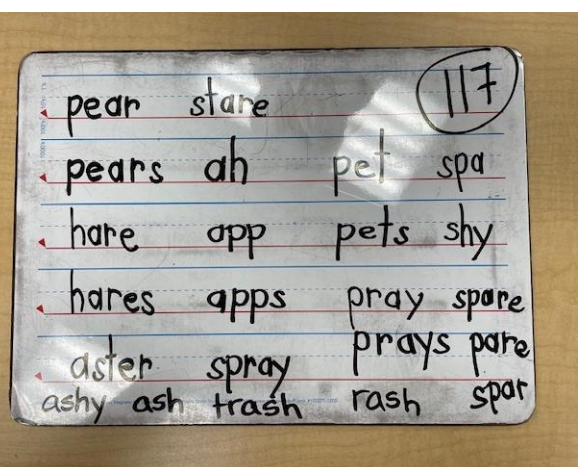 pear stare 117
pears ah pet spa
hare app pets shy
hares apps pray spare
aster spray prays pare
ashy ash trash rash spar